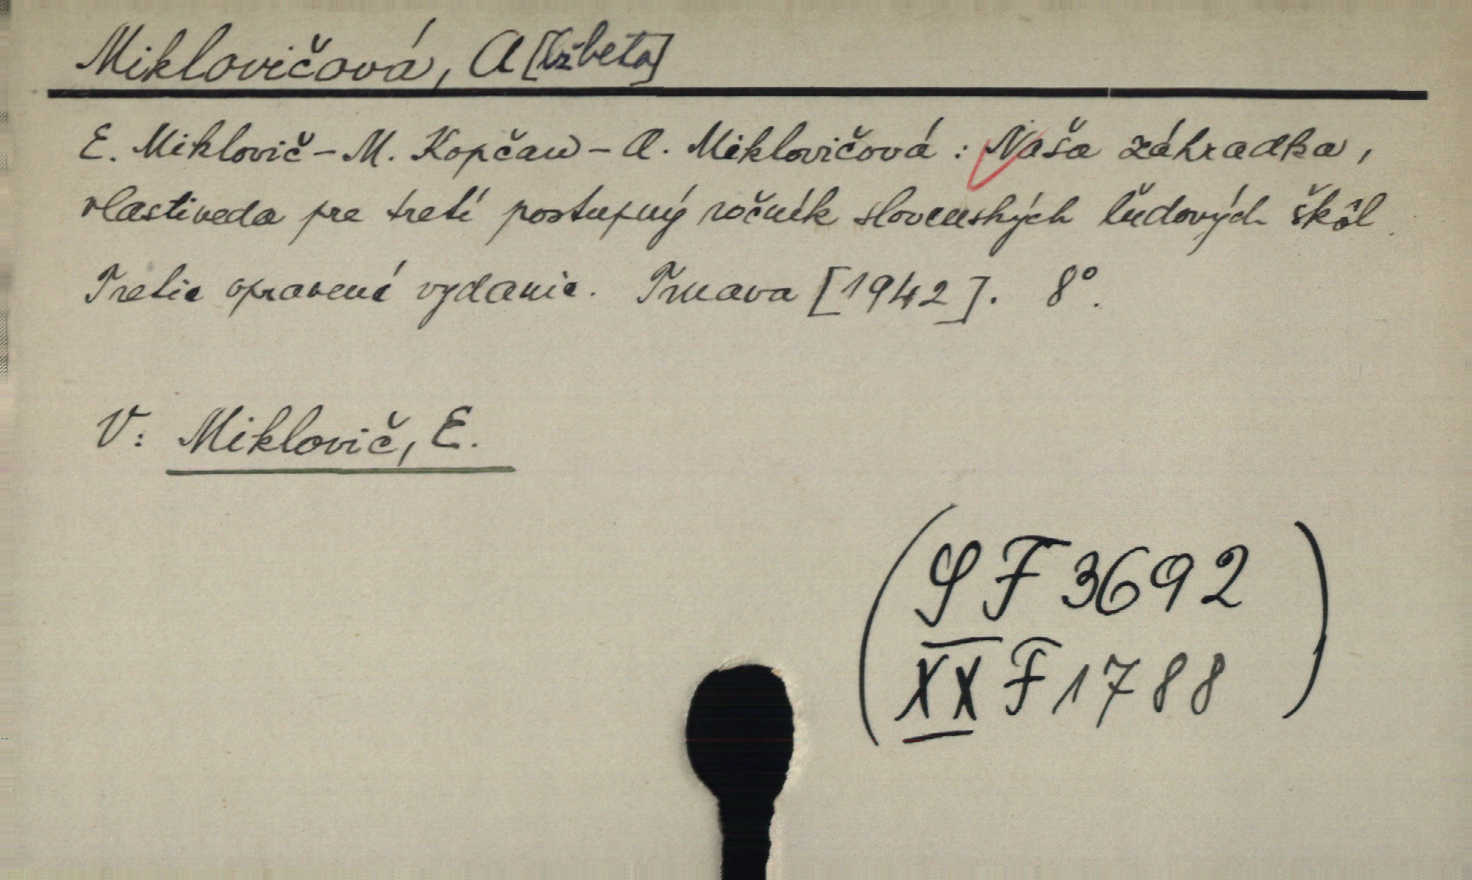 Miklovičová, A[lžbeta]
E. Miklovič - M. Kopčan - A. Miklovičová: Naša záhradka,
vlastiveda pre tretí postupný ročník slovenských ľudových škôl.
Tretie opravené vydanie. Trnava [1942]. 8°.
V: Miklovič, E.
(SF 3692
XX F 1788)